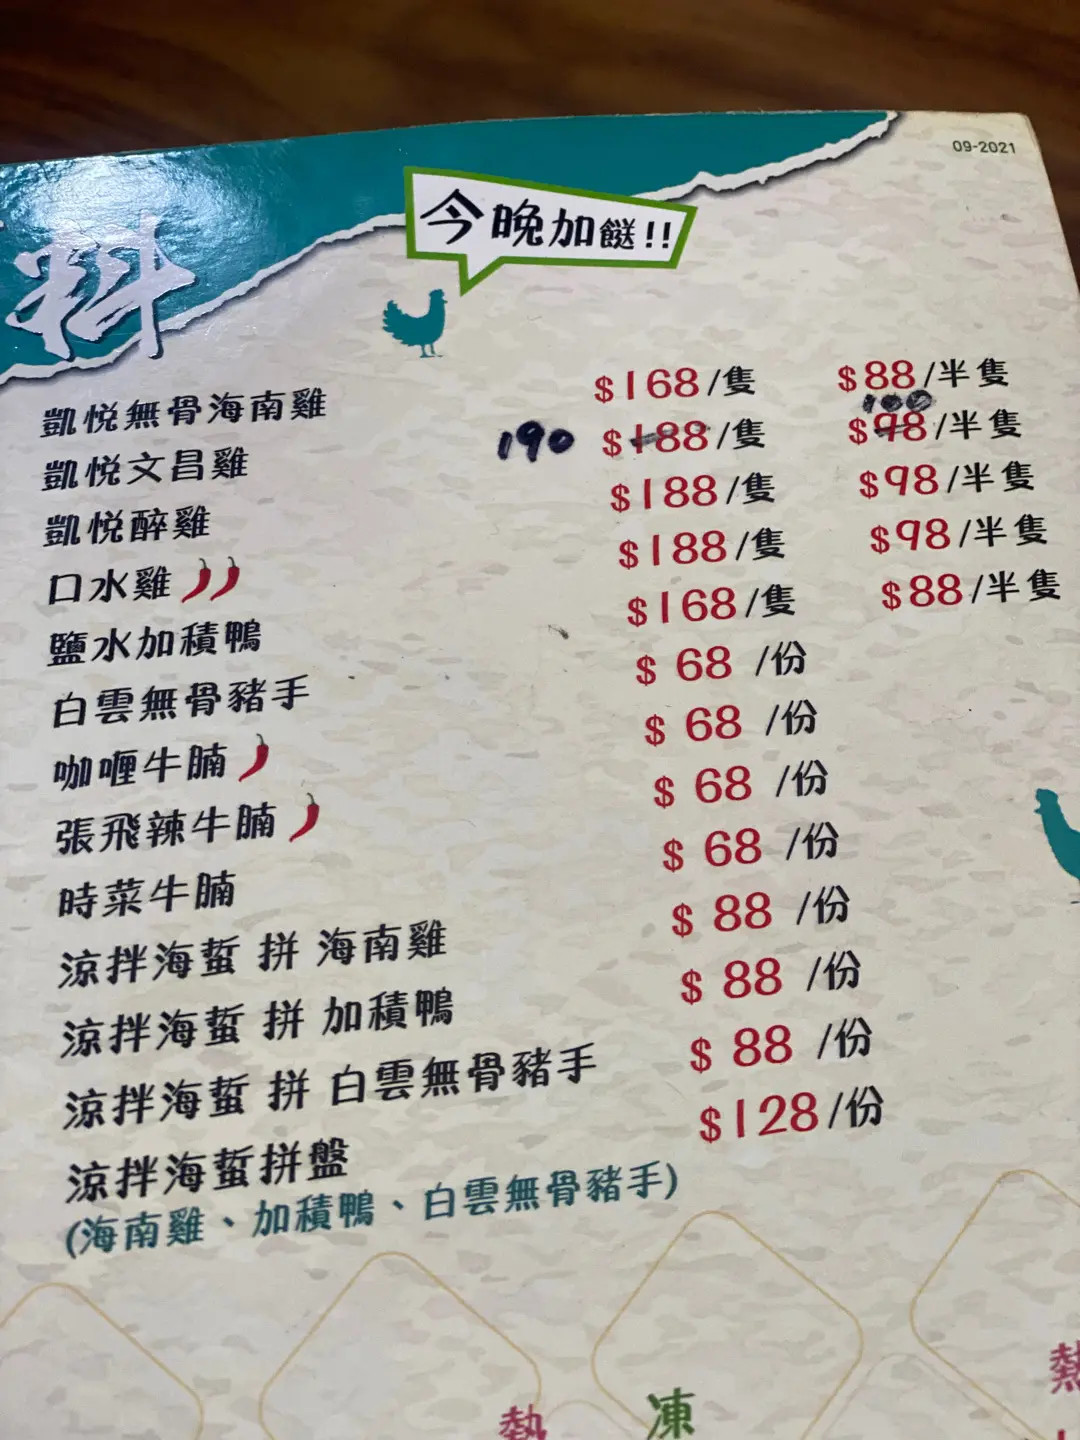 09-2021
今晚加餸!!
料
凱悅無骨海南雞 $168/隻 $88/半隻
凱悅文昌雞 190 $188/隻 100 $98/半隻
凱悅醉雞 $188/隻 $98/半隻
口水雞 $188/隻 $98/半隻
鹽水加積鴨 $168/隻 $88/半隻
白雲無骨豬手 $ 68 /份
咖喱牛腩 $ 68 /份
張飛辣牛腩 $ 68 /份
時菜牛腩 $ 68 /份
涼拌海蜇 拼 海南雞 $ 88 /份
涼拌海蜇 拼 加積鴨 $ 88 /份
涼拌海蜇 拼 白雲無骨豬手 $ 88 /份
涼拌海蜇拼盤 $128/份
(海南雞、加積鴨、白雲無骨豬手)
熱 凍 熱